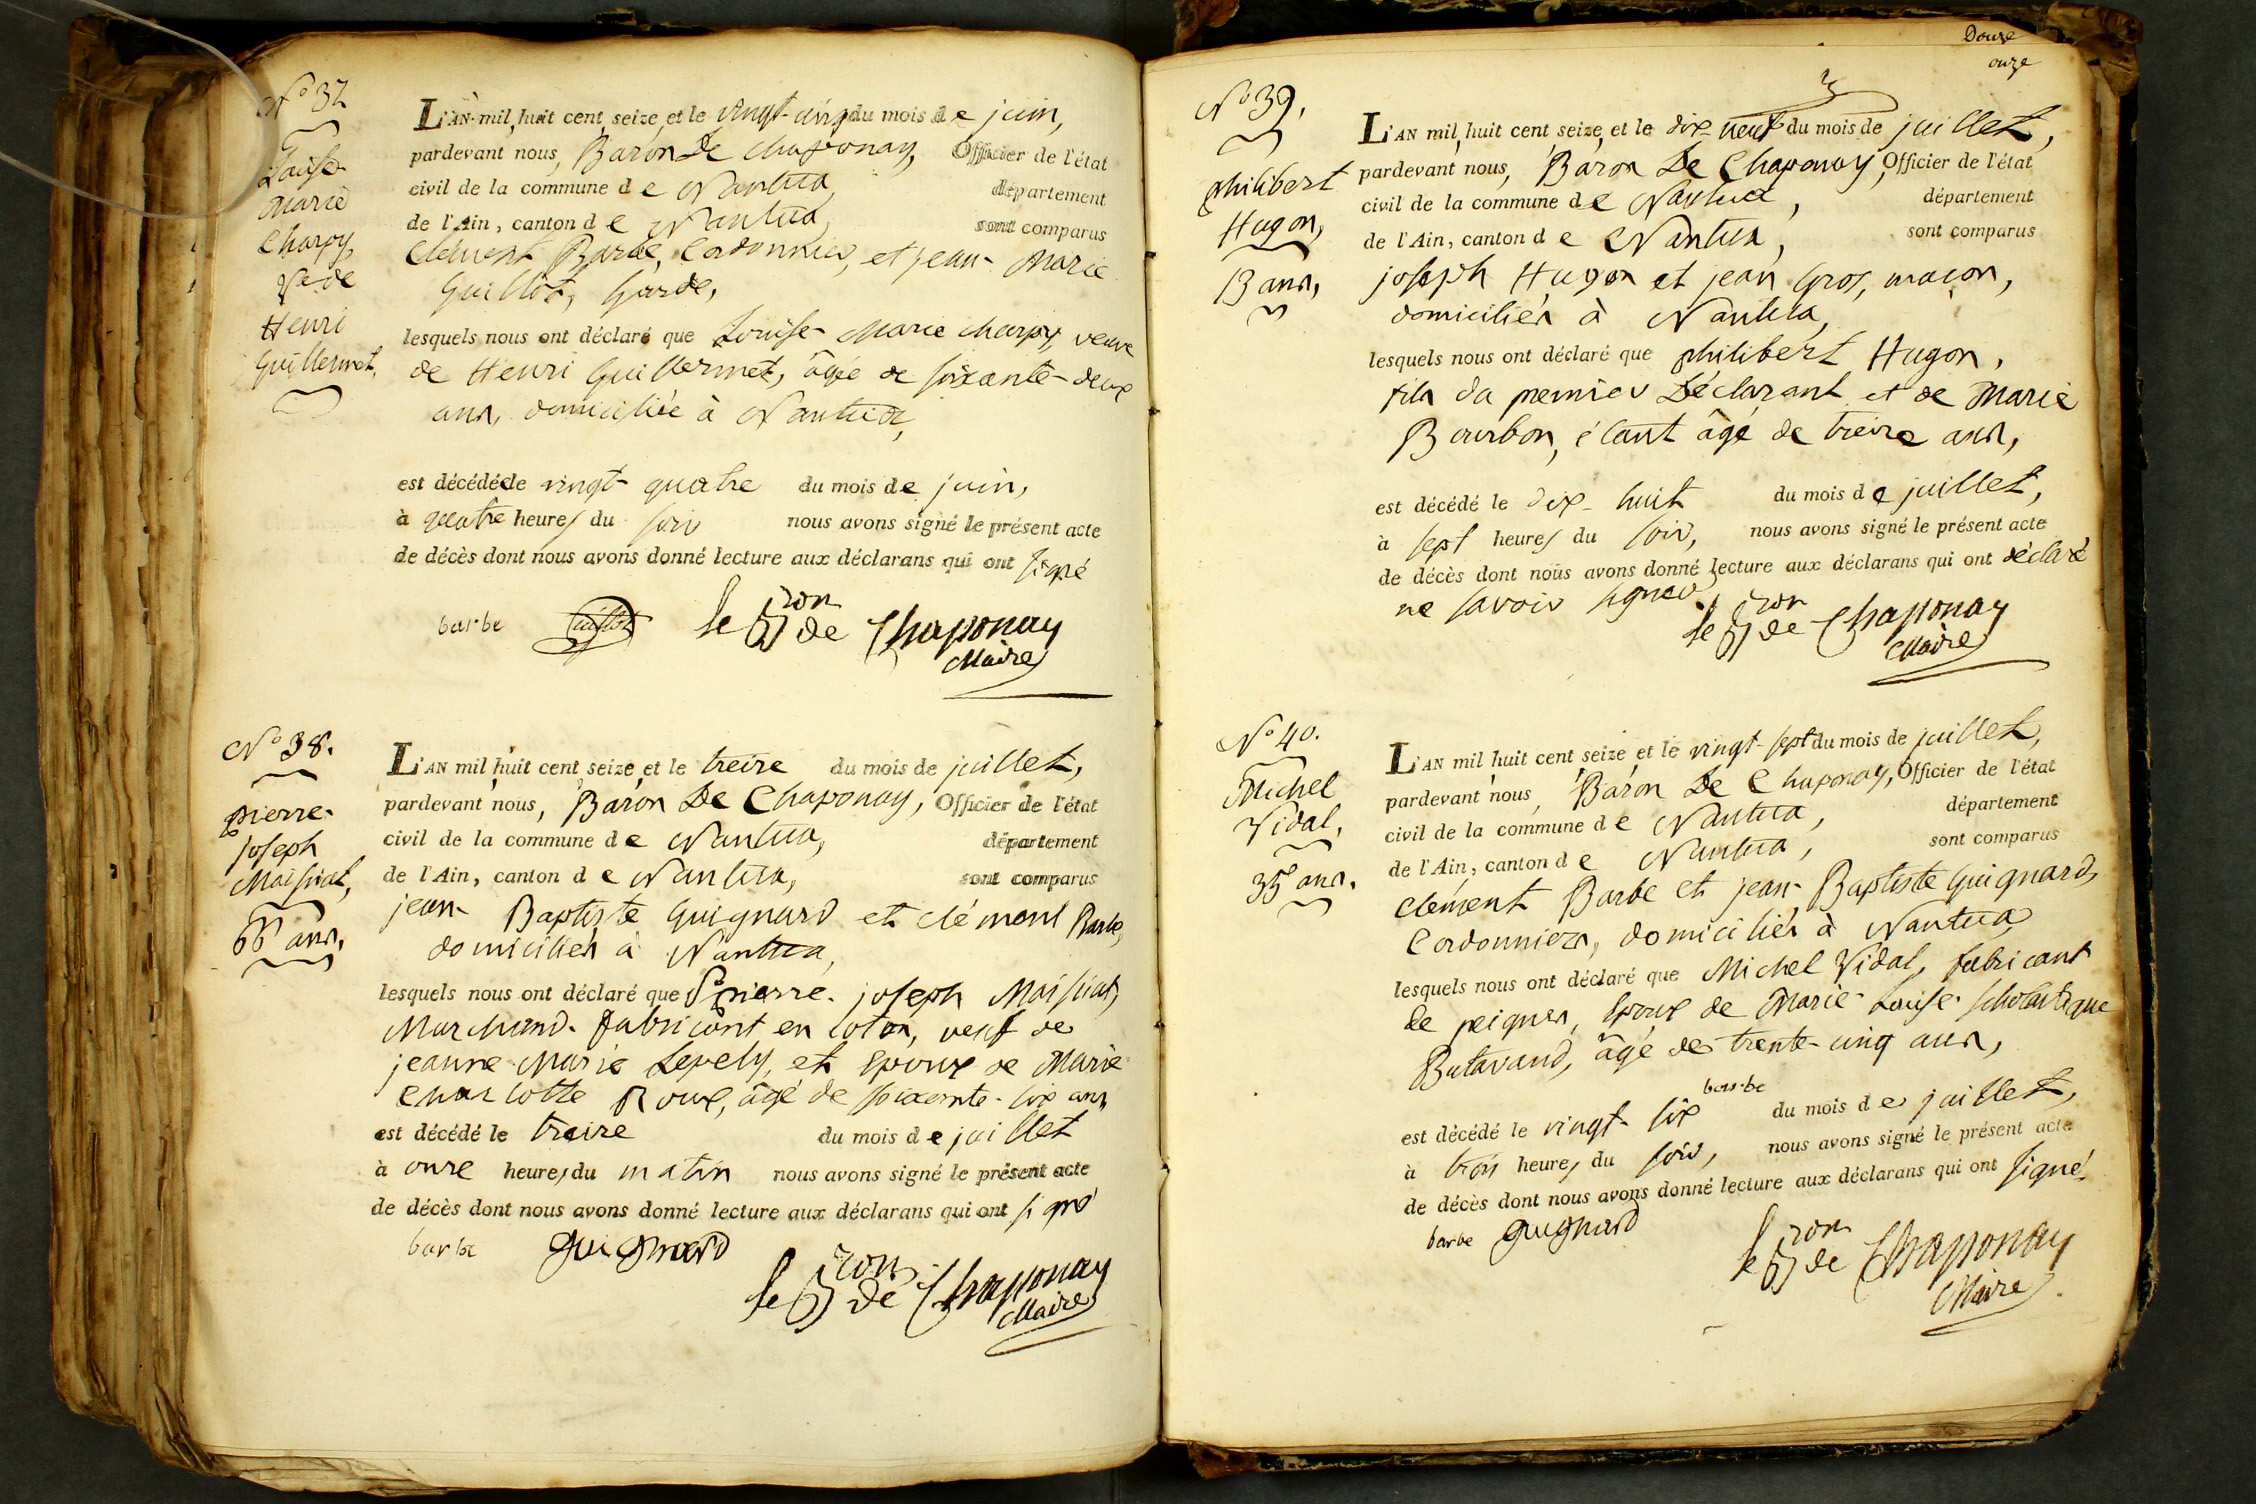 N° 37
Louise
Marie
Charpy,
Ve de
Henri
Guillermet,
L'AN mil huit cent seize et le vingt-cinq du mois de juin,
pardevant nous, Baron De Chaponay, Officier de l'état
civil de la commune de Nantua, département
de l'Ain, canton de Nantua, sont comparus
Clément Barbe, Cordonnier, et jean-Marie
Guillot, Garde,
lesquels nous ont déclaré que Louise-Marie Charpy, veuve
de Henri Guillermet, âgée de soixante-deux
ans, domiciliée à Nantua,
est décédée le vingt-quatre du mois de juin,
à quatre heures du soir nous avons signé le présent acte
de décès dont nous avons donné lecture aux déclarans qui ont signé
barbe Guillot le Bron de Chaponay
Maire
N° 38.
pierre-
joseph
Maissiat,
66 ans,
L'AN mil huit cent seize et le treize du mois de juillet,
pardevant nous, Baron De Chaponay, Officier de l'état
civil de la commune de Nantua, département
de l'Ain, canton de Nantua, sont comparus
jean-Baptiste Guignard et clément Barbe,
domiciliés à Nantua,
lesquels nous ont déclaré que Sr pierre-joseph Maissiat,
Marchand-fabricant en coton, veuf de
jeanne-Marie Levely, et Epoux de Marie-
Charlotte Roux, âgé de soixante-six ans
est décédé le treize du mois de juillet
à onze heures du matin nous avons signé le présent acte
de décès dont nous avons donné lecture aux déclarans qui ont signé
barbe guignard
le Bron de Chaponay
Maire
Douze
onze
N° 39.
philibert
Hugon,
13 ans,
L'AN mil huit cent seize, et le dix-neuf du mois de juillet,
pardevant nous, Baron De Chaponay, Officier de l'état
civil de la commune de Nantua, département
de l'Ain, canton de Nantua, sont comparus
joseph Hugon et jean Gros, maçon,
domiciliés à Nantua,
lesquels nous ont déclaré que philibert Hugon,
fils du premier Déclarant et de Marie
Bourbon, étant âgé de treize ans,
est décédé le dix-huit du mois de juillet,
à sept heures du soir, nous avons signé le présent acte
de décès dont nous avons donné lecture aux déclarans qui ont déclaré
ne savoir signer.
le Bron de Chaponay
Maire
N° 40.
Michel
Vidal,
35 ans.
L'AN mil huit cent seize et le vingt-sept du mois de juillet,
pardevant nous, Baron De Chaponay, Officier de l'état
civil de la commune de Nantua, département
de l'Ain, canton de Nantua, sont comparus
clément Barbe et jean-Baptiste Guignard,
Cordonniers, domiciliés à Nantua
lesquels nous ont déclaré que Michel Vidal, fabricant
de peignes, Epoux de Marie-Louise-Scholastique
Butavand, âgé de trente-cinq ans,
barbe
est décédé le vingt-six du mois de juillet,
à trois heures du soir, nous avons signé le présent acte
de décès dont nous avons donné lecture aux déclarans qui ont signé.
barbe guignard
le Bron de Chaponay
Maire